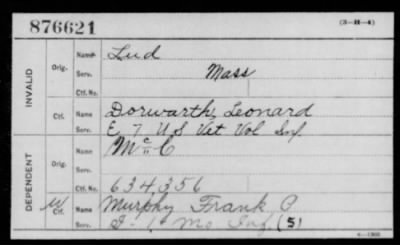 876621
(3-21-4)
INVALID
Orig.
Name Lud
Serv. Mass
Ctf. No.
Ctf.
Name Dorwarth, Leonard
Serv. E 7 U S Vet Vol Inf.
DEPENDENT
Orig.
Name McC
Serv.
Ctf. No. 634,356
W Ctf.
Name Murphy Frank
Serv. 1 Mo Inf. (S)